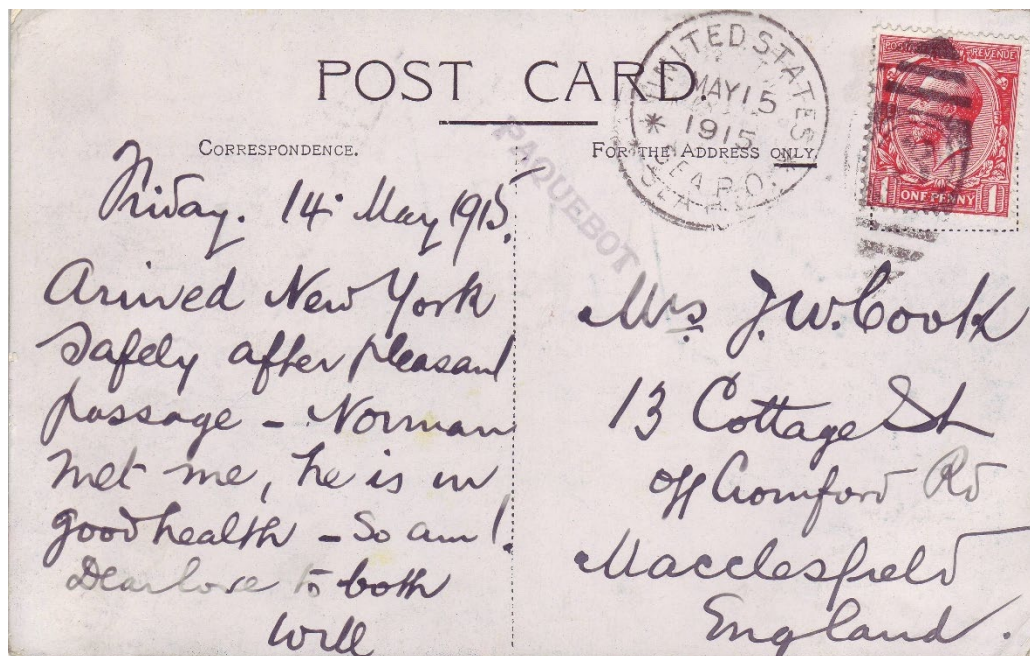 POST CARD.
CORRESPONDENCE.
FOR THE ADDRESS ONLY.
PAQUEBOT
UNITED STATES
MAY 15
1915
SEA P.O.
POSTAGE REVENUE
ONE PENNY
1 1
Friday. 14 May 1915.
Arrived New York
safely after pleasant
passage – Norman
met me, he is in
good health – So am I.
Dear love to both
Will
Mrs J.W. Cook
13 Cottage St
off Cromford Rd
Macclesfield
England.